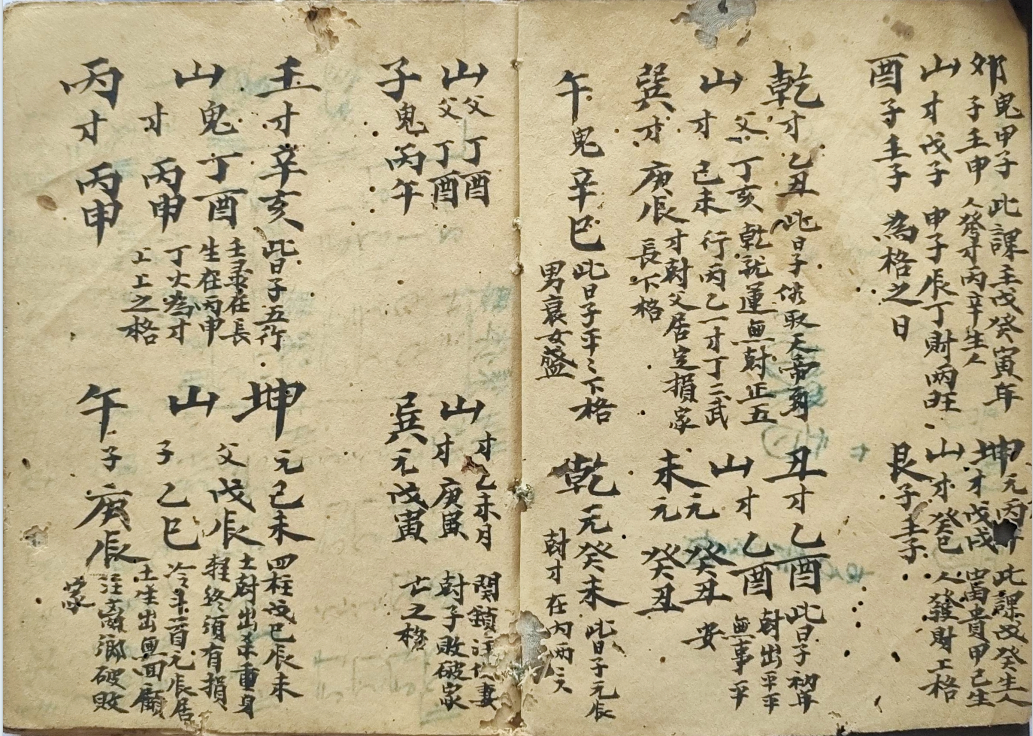 郊鬼甲子 此課壬戊癸寅年
子壬申 人發才丙辛生人
山才戊子 申子辰丁財兩旺
酉子壬子 為格之日
坤元丙 此課改癸生人
才戊戌 富貴甲己生
山才癸巳 人發財工格
艮子壬子
乾才乙丑 此日子
父丁亥 乾 運無財正五
山才己未 行丙乙一才丁三武
巽才庚辰 才財父居定損家
長下格
午鬼辛巳 此日子平之下格
男衰女盛
丑才乙酉 此日子初年
山才乙酉 財出平平
元癸丑 無事平
未元癸丑 安
乾元癸未 此日子元辰
財才在內兩
山父丁酉
父丁酉
子鬼丙午
山才乙未月 関鎖 妻
才庚寅 財子敗破家
巽元戊寅 亡之格
壬才辛亥 此日子五行
山鬼丁酉 壬 在長
生在丙申
才丙申 丁火為才
丙才丙申 工工之格
坤元己未 四柱戊己辰未
父戊辰 土財出 重身
山 輕終須有損
子乙巳 元辰居
土生出無回顧
午子庚辰 鄉破敗